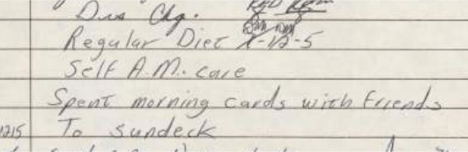 Dus Chg.
Regular Diet 7-12-5
Self A.M. care
Spent morning cards with friends
1215 To sundeck